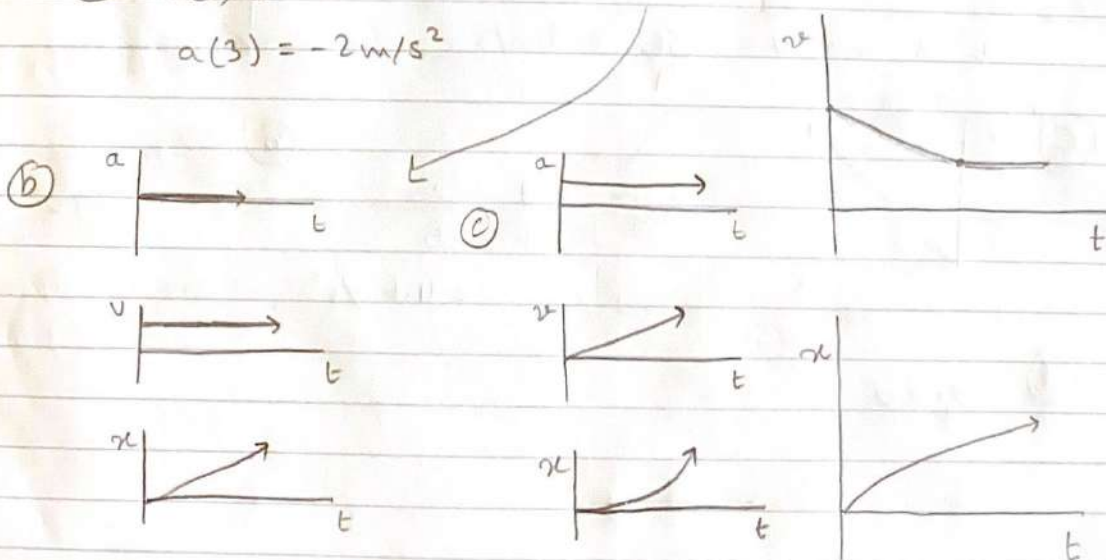 a(3) = -2 m/s²
v
t
b
a
t
c
a
t
v
t
v
t
x
t
x
t
x
t